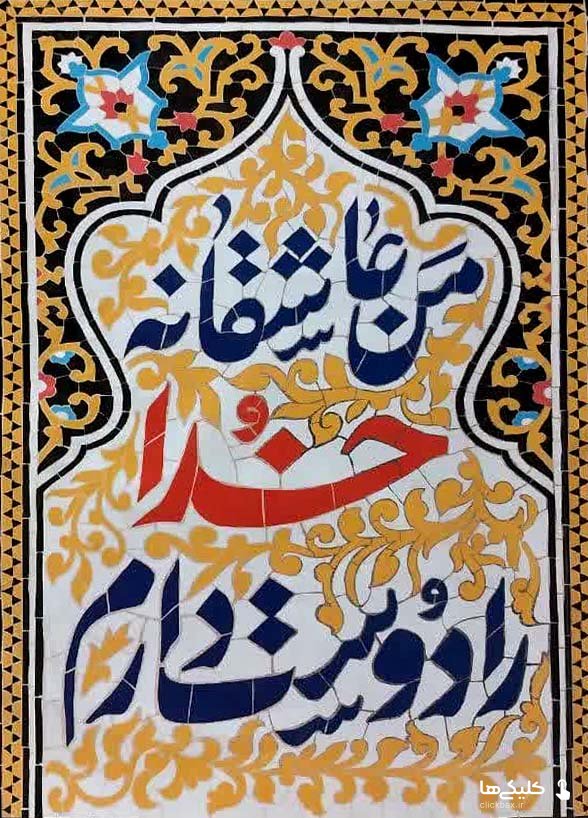 من عاشقانه
خدا
را دوست دارم
کلیکی‌ها
clickbax.ir